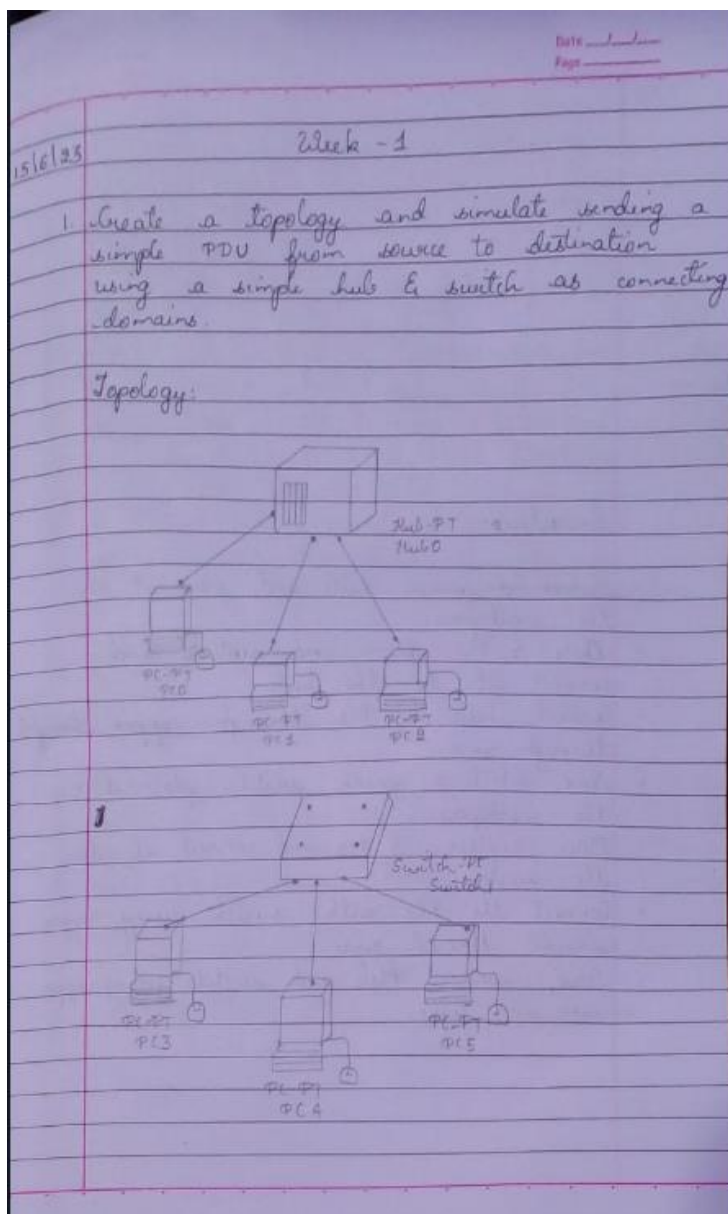 Date __/__/__
Page ______
15/6/23
Week - 1
1. Create a topology and simulate sending a
simple PDU from source to distination
using a simple hub & switch as connecting
domains.
Topology:
Hub-PT
Hub0
PC-PT
PC0
PC-PT
PC1
PC-PT
PC2
Switch-PT
Switch1
PC-PT
PC3
PC-PT
PC5
PC-PT
PC4